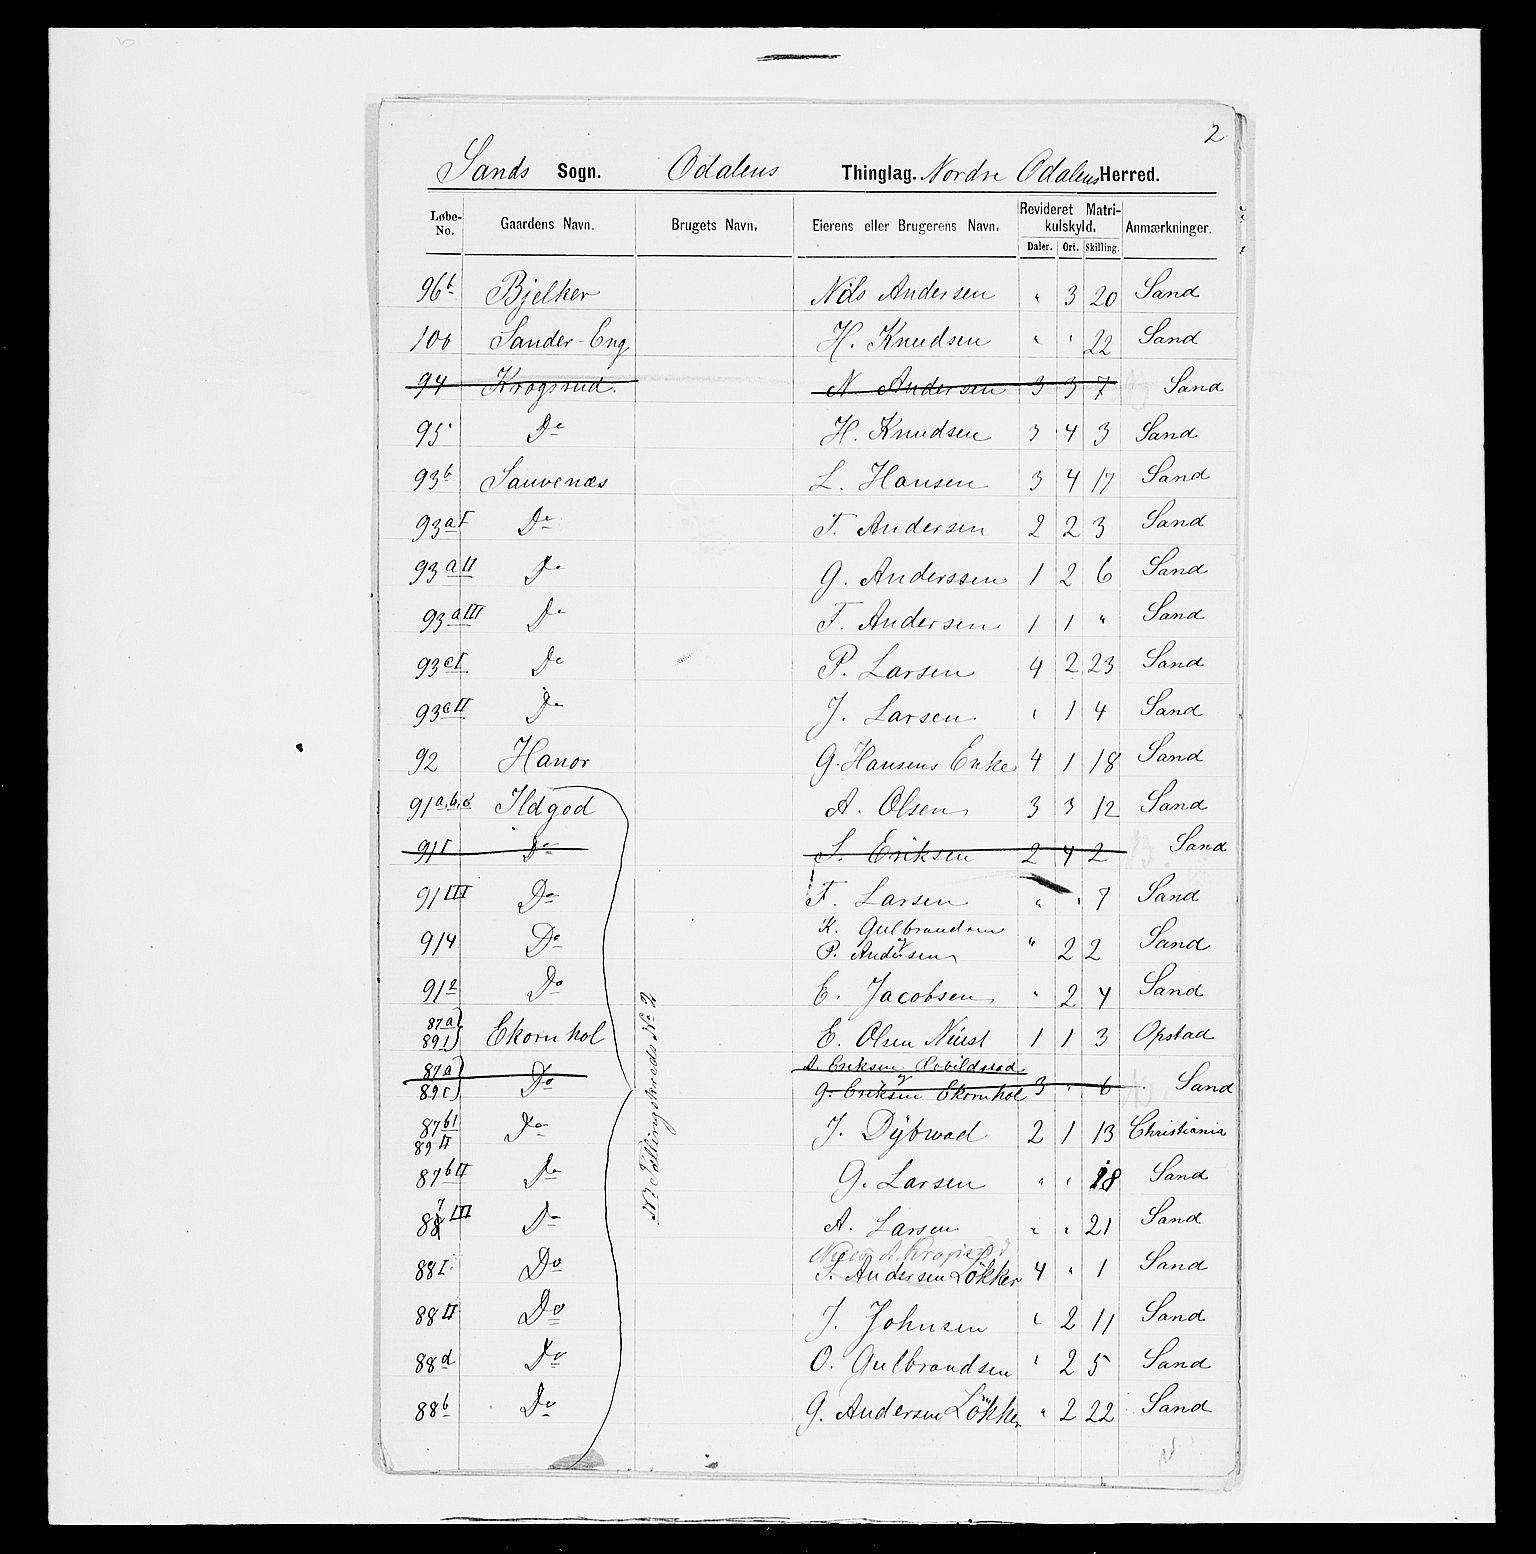 2
Sands Sogn. Odalens Thinglag. Nordre Odalens Herred.
Løbe-No. Gaardens Navn. Brugets Navn. Eierens eller Brugerens Navn. Revideret Matrikulskyld. Anmærkninger.
Daler. Ort. Skilling.
96b Bjelker Nils Andersen " 3 20 Sand
100 Sander-Eng H. Knudsen " " 22 Sand
94 Krogsrud. N. Andersen 3 3 7 Sand
95 Do H. Knudsen 3 4 3 Sand
93b Sauvenæs L. Hansen 3 4 17 Sand
93aI Do T. Andersen 2 2 3 Sand
93aII Do G. Anderssen 1 2 6 Sand
93aIII Do F. Andersen 1 1 " Sand
93cI Do P. Larsen 4 2 23 Sand
93cII Do J. Larsen " 1 4 Sand
92 Hanor G. Hansens Enke 4 1 18 Sand
91a,b,c Ildgod A. Olsen 3 3 12 Sand
91I Do S. Eriksen 2 4 2 Sand
91III Do F. Larsen " " 7 Sand
914 Do K. Gulbrandsen
og
P. Andersen " 2 2 Sand
912 Do E. Jacobsen " 2 4 Sand
87a
891 Ekornhol E. Olsen 1 1 3 Opstad
87a
89c Do A. Eriksen
og
G. Eriksen Ekornhol 3 " 6 Sand
87b1
89II Do J. Dybwad 2 1 13 Christiania
87bII Do G. Larsen " " 18 Sand
87III Do A. Larsen " " 21 Sand
88I Do T. Andersen Løkker 4 " 1 Sand
88II Do J. Johnsen " 2 11 Sand
88d Do O. Gulbrandsen " 2 5 Sand
88b Do G. Andersen Løkker " 2 22 Sand
Tællingskreds No 2